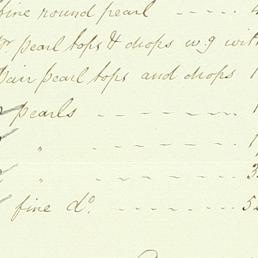 fine round pearl
pr pearl tops & drops w.g with
pair pearl tops and drops 1
pearls 1
" 1
" 3
fine do. 52